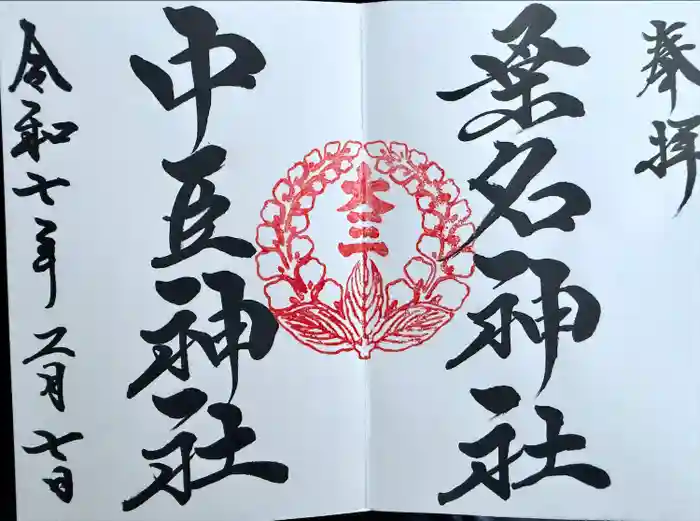 奉拝
桑名神社
中臣神社
令和七年二月七日
大三